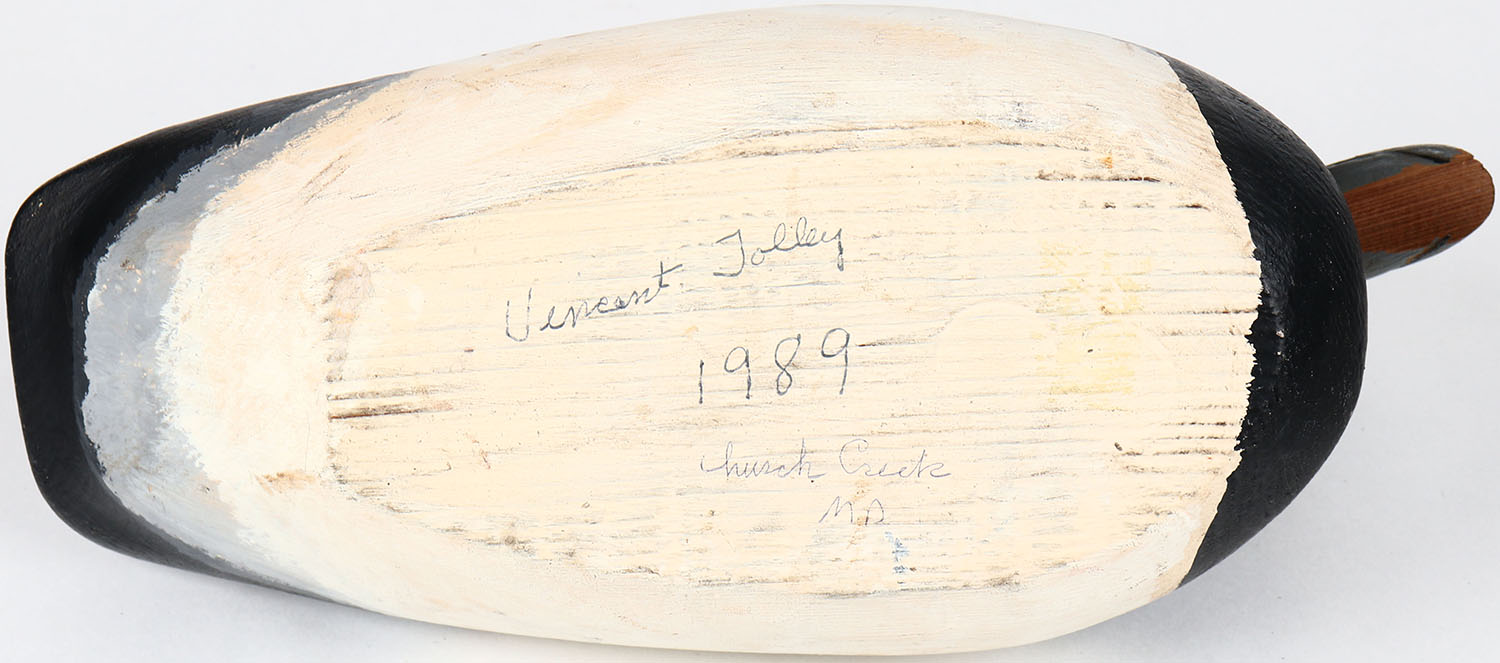 Vincent Tolley
1989
Church Creek
MD